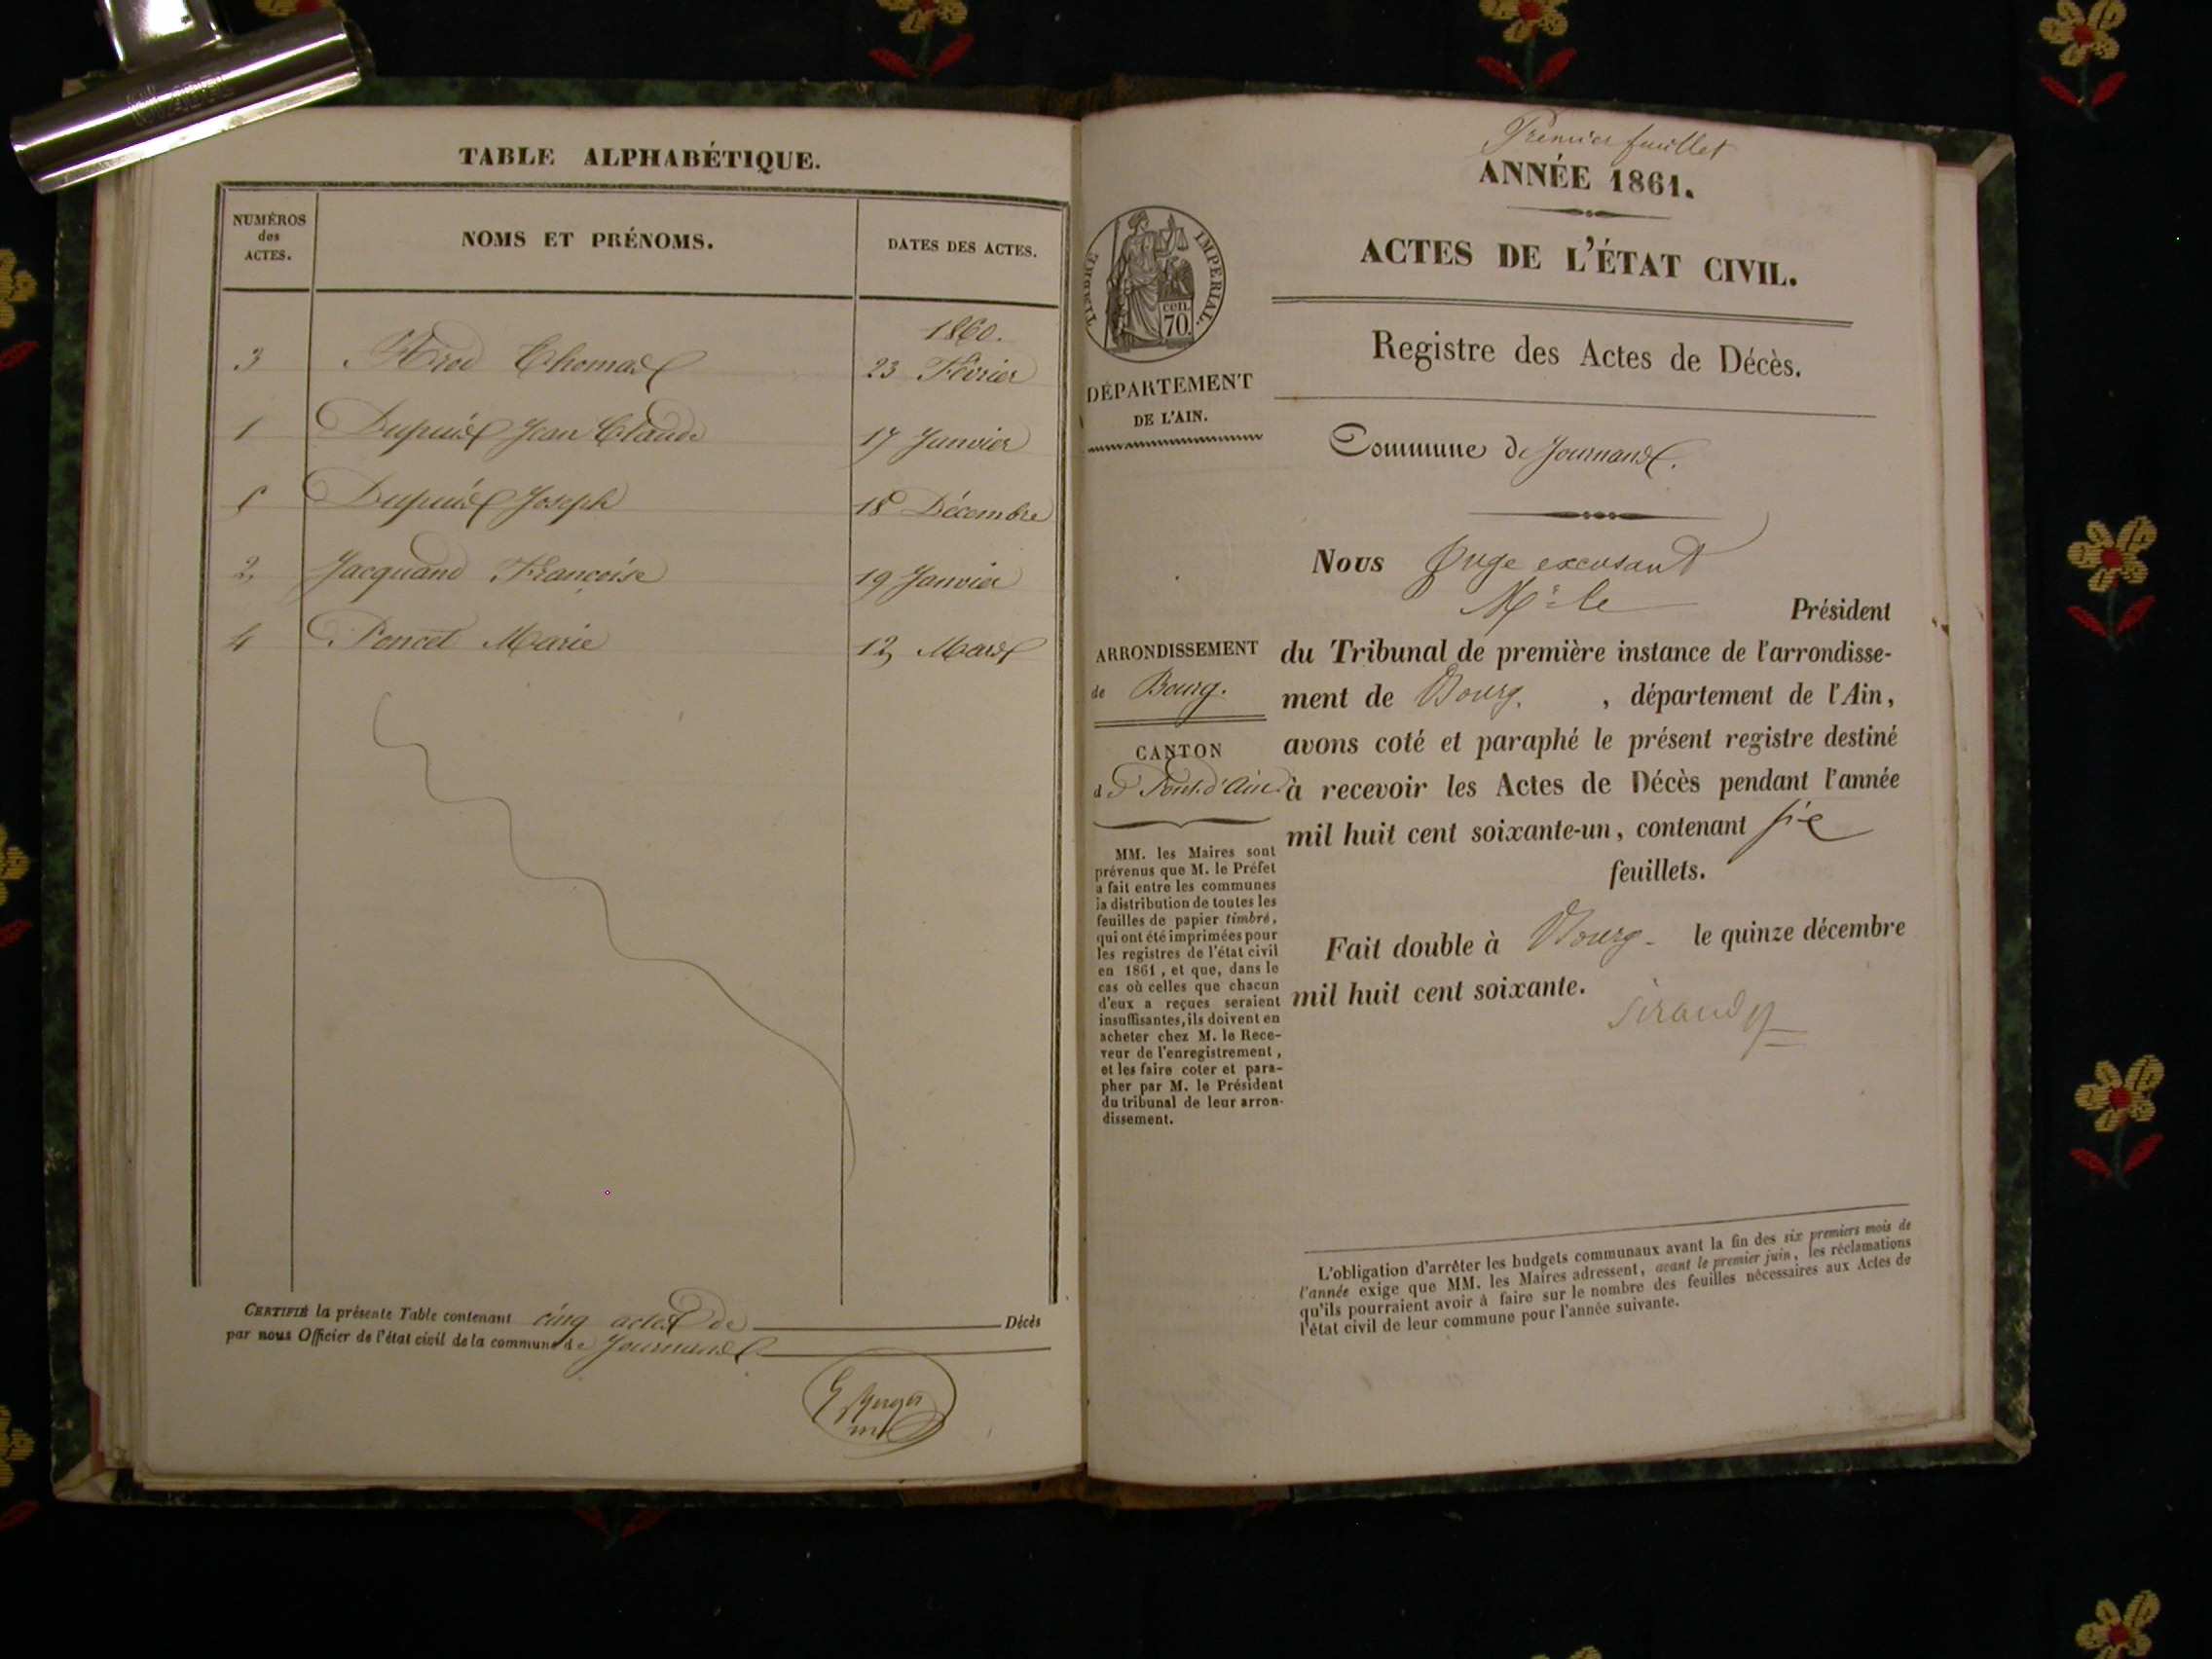 TABLE ALPHABÉTIQUE.
NUMÉROS
des
ACTES.
NOMS ET PRÉNOMS.
DATES DES ACTES.
1860.
3 Thomas 23 Février
1 Dupuis Jean Claude 17 Janvier
5 Dupuis Joseph 18 Décembre
2 Jacquand Françoise 19 Janvier
4 Poncet Marie 12 Mars
CERTIFIÉ la présente Table contenant cinq actes de Décès
par nous Officier de l'état civil de la commune de Journans
Berger
Premier feuillet
ANNÉE 1861.
ACTES DE L'ÉTAT CIVIL.
Registre des Actes de Décès.
TIMBRE IMPÉRIAL.
cen.
70.
DÉPARTEMENT
DE L'AIN.
Commune de Journans.
Nous Juge excusant
Mr le Président
du Tribunal de première instance de l'arrondisse-
ment de Bourg. , département de l'Ain,
avons coté et paraphé le présent registre destiné
à recevoir les Actes de Décès pendant l'année
mil huit cent soixante-un, contenant six
feuillets.
Fait double à Bourg. le quinze décembre
mil huit cent soixante.
ARRONDISSEMENT
de Bourg.
CANTON
d Pont-d'Ain
MM. les Maires sont
prévenus que M. le Préfet
a fait entre les communes
la distribution de toutes les
feuilles de papier timbré,
qui ont été imprimées pour
les registres de l'état civil
en 1861, et que, dans le
cas où celles que chacun
d'eux a reçues seraient
insuffisantes, ils doivent en
acheter chez M. le Rece-
veur de l'enregistrement,
et les faire coter et para-
pher par M. le Président
du tribunal de leur arron-
dissement.
L'obligation d'arrêter les budgets communaux avant la fin des six premiers mois de
l'année exige que MM. les Maires adressent, avant le premier juin, les réclamations
qu'ils pourraient avoir à faire sur le nombre des feuilles nécessaires aux Actes de
l'état civil de leur commune pour l'année suivante.